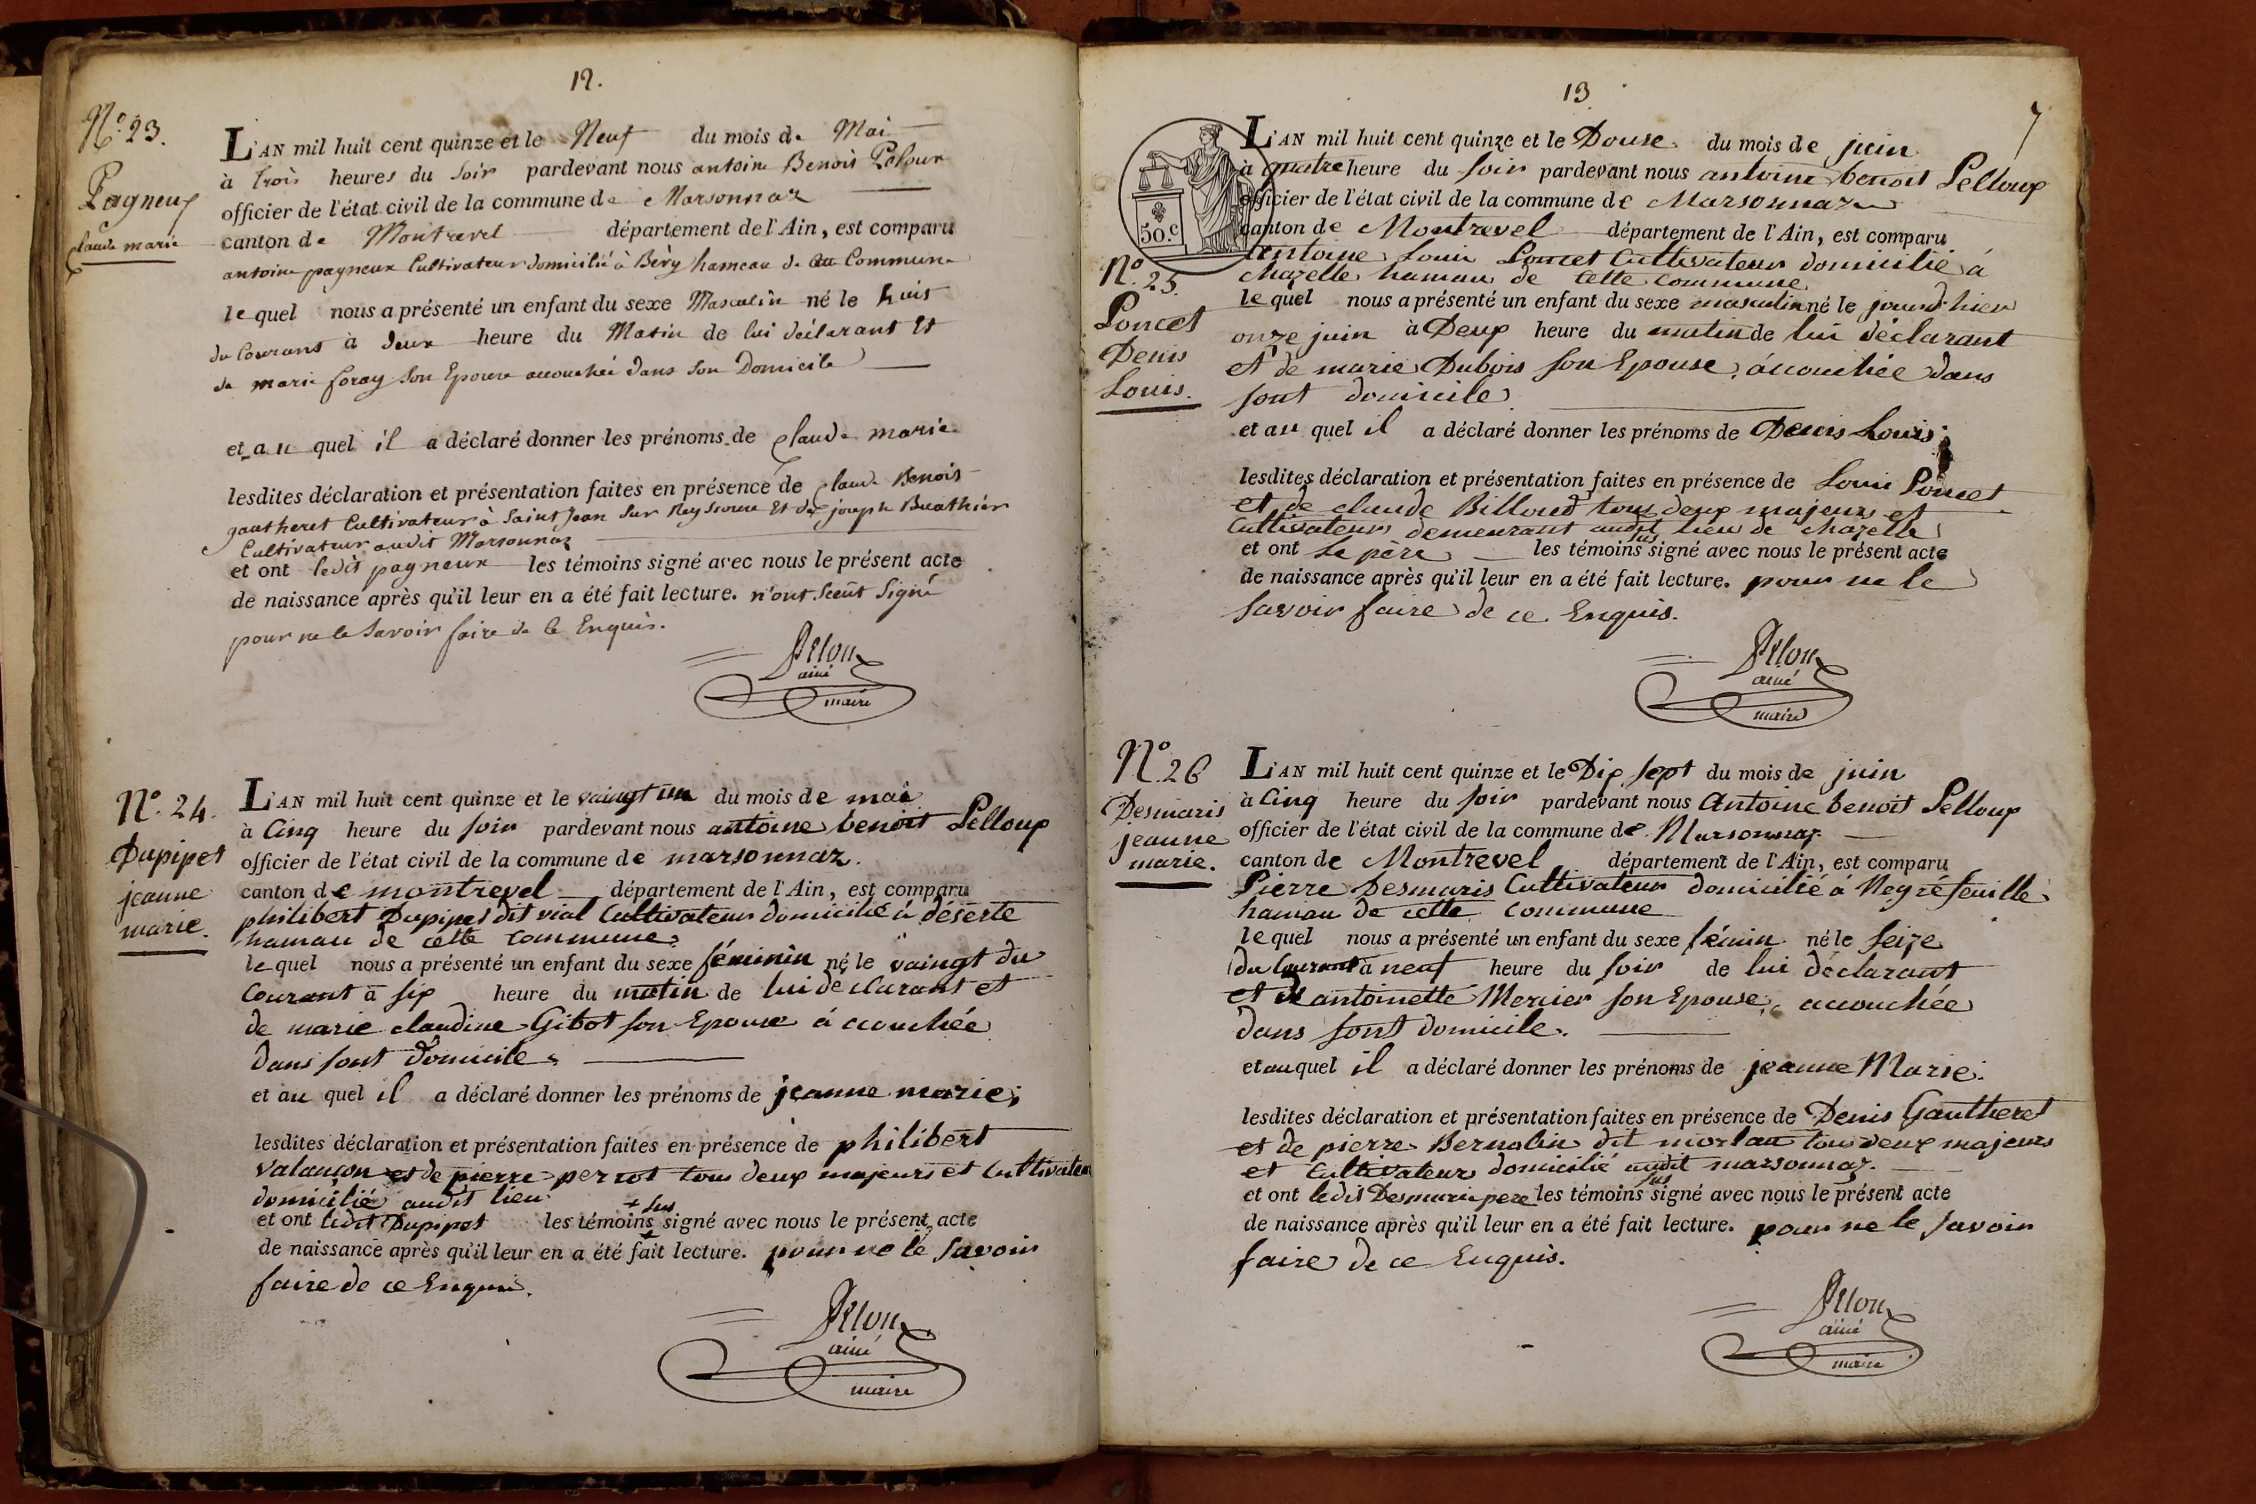 12.
N.º 23.
Pagneux
claude marie
L'AN mil huit cent quinze et le Neuf du mois de Mai
à trois heures du soir pardevant nous antoine Benoit Peloux
officier de l'état civil de la commune de Marsonnaz
canton de Montrevel département de l'Ain, est comparu
antoine pagneux Cultivateur domicilié à Béry hameau de Commune
lequel nous a présenté un enfant du sexe Masculin né le huit
du Courant à deux heure du Matin de lui déclarant Et
de marie foray son Epouse accouchée dans son Domicile
et au quel il a déclaré donner les prénoms de claude marie
lesdites déclaration et présentation faites en présence de claude Benoit
gautheret Cultivateur à Saint Jean sur Reyssouze Et de joseph Buathier
Cultivateur audit Marsonnaz
et ont ledit pagneux les témoins signé avec nous le présent acte
de naissance après qu'il leur en a été fait lecture. n'ont sceut Signé
pour ne le Savoir faire de ce Enquis.
Pelou
ainé
maire
N.º 24.
Dupipet
jeanne
marie.
L'AN mil huit cent quinze et le vaingt un du mois de mai
à Cinq heure du soir pardevant nous antoine benoit Pelloux
officier de l'état civil de la commune de marsonnaz.
canton de montrevel département de l'Ain, est comparu
philibert Dupipet dit vial Cultivateur domicilié à déserte
hamau de cette commune
lequel nous a présenté un enfant du sexe féminin né le vaingt du
Courant à six heure du matin de lui declarant et
de marie claudine Gibot son Epouse accouchée
dans sont domicile
et au quel il a déclaré donner les prénoms de jeanne marie;
lesdites déclaration et présentation faites en présence de philibert
valancon et de pierre perrot tous deux majeurs et Cultivateur
domicilié audit lieu
+ sus
et ont ledit Dupipet les témoins signé avec nous le présent acte
de naissance après qu'il leur en a été fait lecture. pour ne le savoir
faire de ce Enquis.
Pelou
ainé
maire
13
7
50.c
N.º 25.
Poncet
Denis
Louis.
L'AN mil huit cent quinze et le Douse du mois de juin
à quatre heure du soir pardevant nous antoine benoit Pelloux
officier de l'état civil de la commune de Marsonnaz
canton de Montrevel département de l'Ain, est comparu
antoine Louis Poncet Cultivateur domicilié à
chazelle hamau de cette commune
lequel nous a présenté un enfant du sexe masculin né le jourd'hier
onze juin à Deux heure du matin de lui déclarant
et de marie Dubois son Epouse, accouchée dans
sont domicile
et au quel il a déclaré donner les prénoms de Denis Louis;
lesdites déclaration et présentation faites en présence de Louis Poncet
et de claude Billoud tous deux majeurs et
Cultivateurs demeurant audit lieu de chazelle
sus
et ont Le père les témoins signé avec nous le présent acte
de naissance après qu'il leur en a été fait lecture. pour ne le
savoir faire de ce Enquis.
Pelou
ainé
maire
N.º 26
Desmaris
jeanne
marie.
L'AN mil huit cent quinze et le Dix sept du mois de juin
à Cinq heure du soir pardevant nous Antoine benoit Pelloux
officier de l'état civil de la commune de Marsonnaz
canton de Montrevel département de l'Ain, est comparu
Pierre Desmaris Cultivateur domicilié à Negrefeuille
hamau de cette commune
lequel nous a présenté un enfant du sexe fémin né le seize
du Courant à neuf heure du soir de lui déclarant
et de antoinette Mercier son Epouse, accouchée
dans sont domicile.
et au quel il a déclaré donner les prénoms de jeanne Marie.
lesdites déclaration et présentation faites en présence de Denis Gautheret
et de pierre Bernolin dit morlan tous deux majeurs
et Cultivateurs domicilié audit marsonnaz.
sus
et ont ledit Desmaris pere les témoins signé avec nous le présent acte
de naissance après qu'il leur en a été fait lecture. pour ne le savoir
faire de ce Enquis.
Pelou
ainé
maire